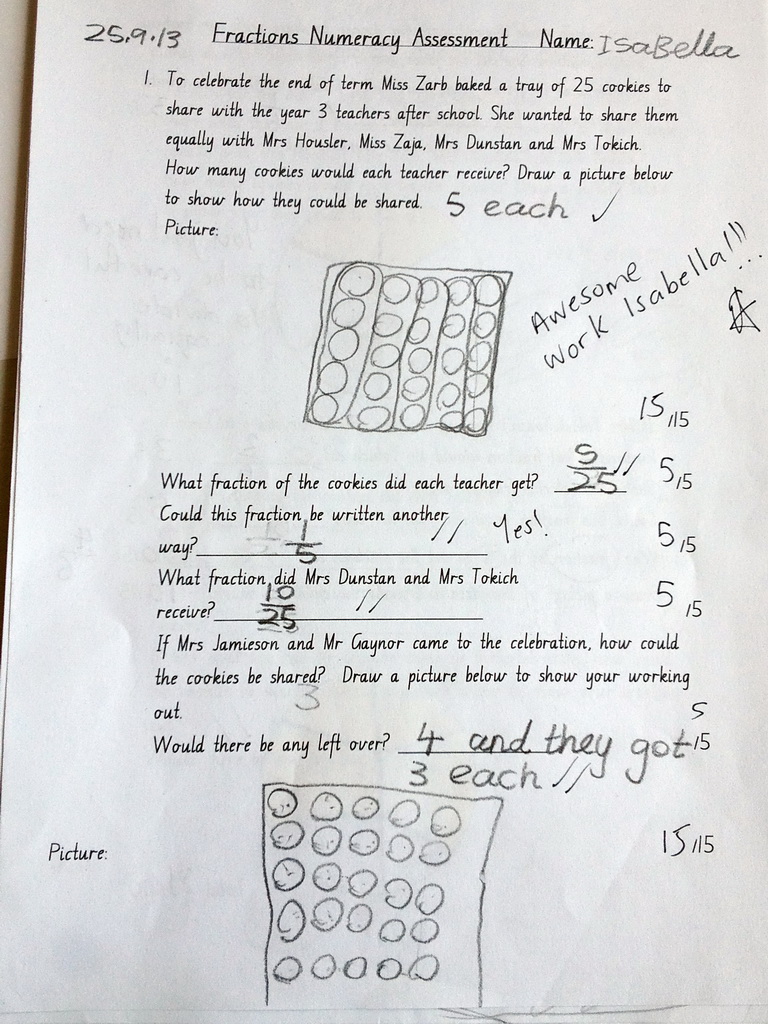 25.9.13 Fractions Numeracy Assessment Name: IsaBella
1. To celebrate the end of term Miss Zarb baked a tray of 25 cookies to
share with the year 3 teachers after school. She wanted to share them
equally with Mrs Housler, Miss Zaja, Mrs Dunstan and Mrs Tokich.
How many cookies would each teacher receive? Draw a picture below
to show how they could be shared. 5 each ✓
Picture:
Awesome
work Isabella!!!
15/15
What fraction of the cookies did each teacher get? 5/25 5/5
Could this fraction be written another
way? 1/5 Yes! 5/5
What fraction did Mrs Dunstan and Mrs Tokich
receive? 10/25 5/5
If Mrs Jamieson and Mr Gaynor came to the celebration, how could
the cookies be shared? Draw a picture below to show your working
out. 3
Would there be any left over? 4 and they got 5/5
3 each
Picture: 15/15